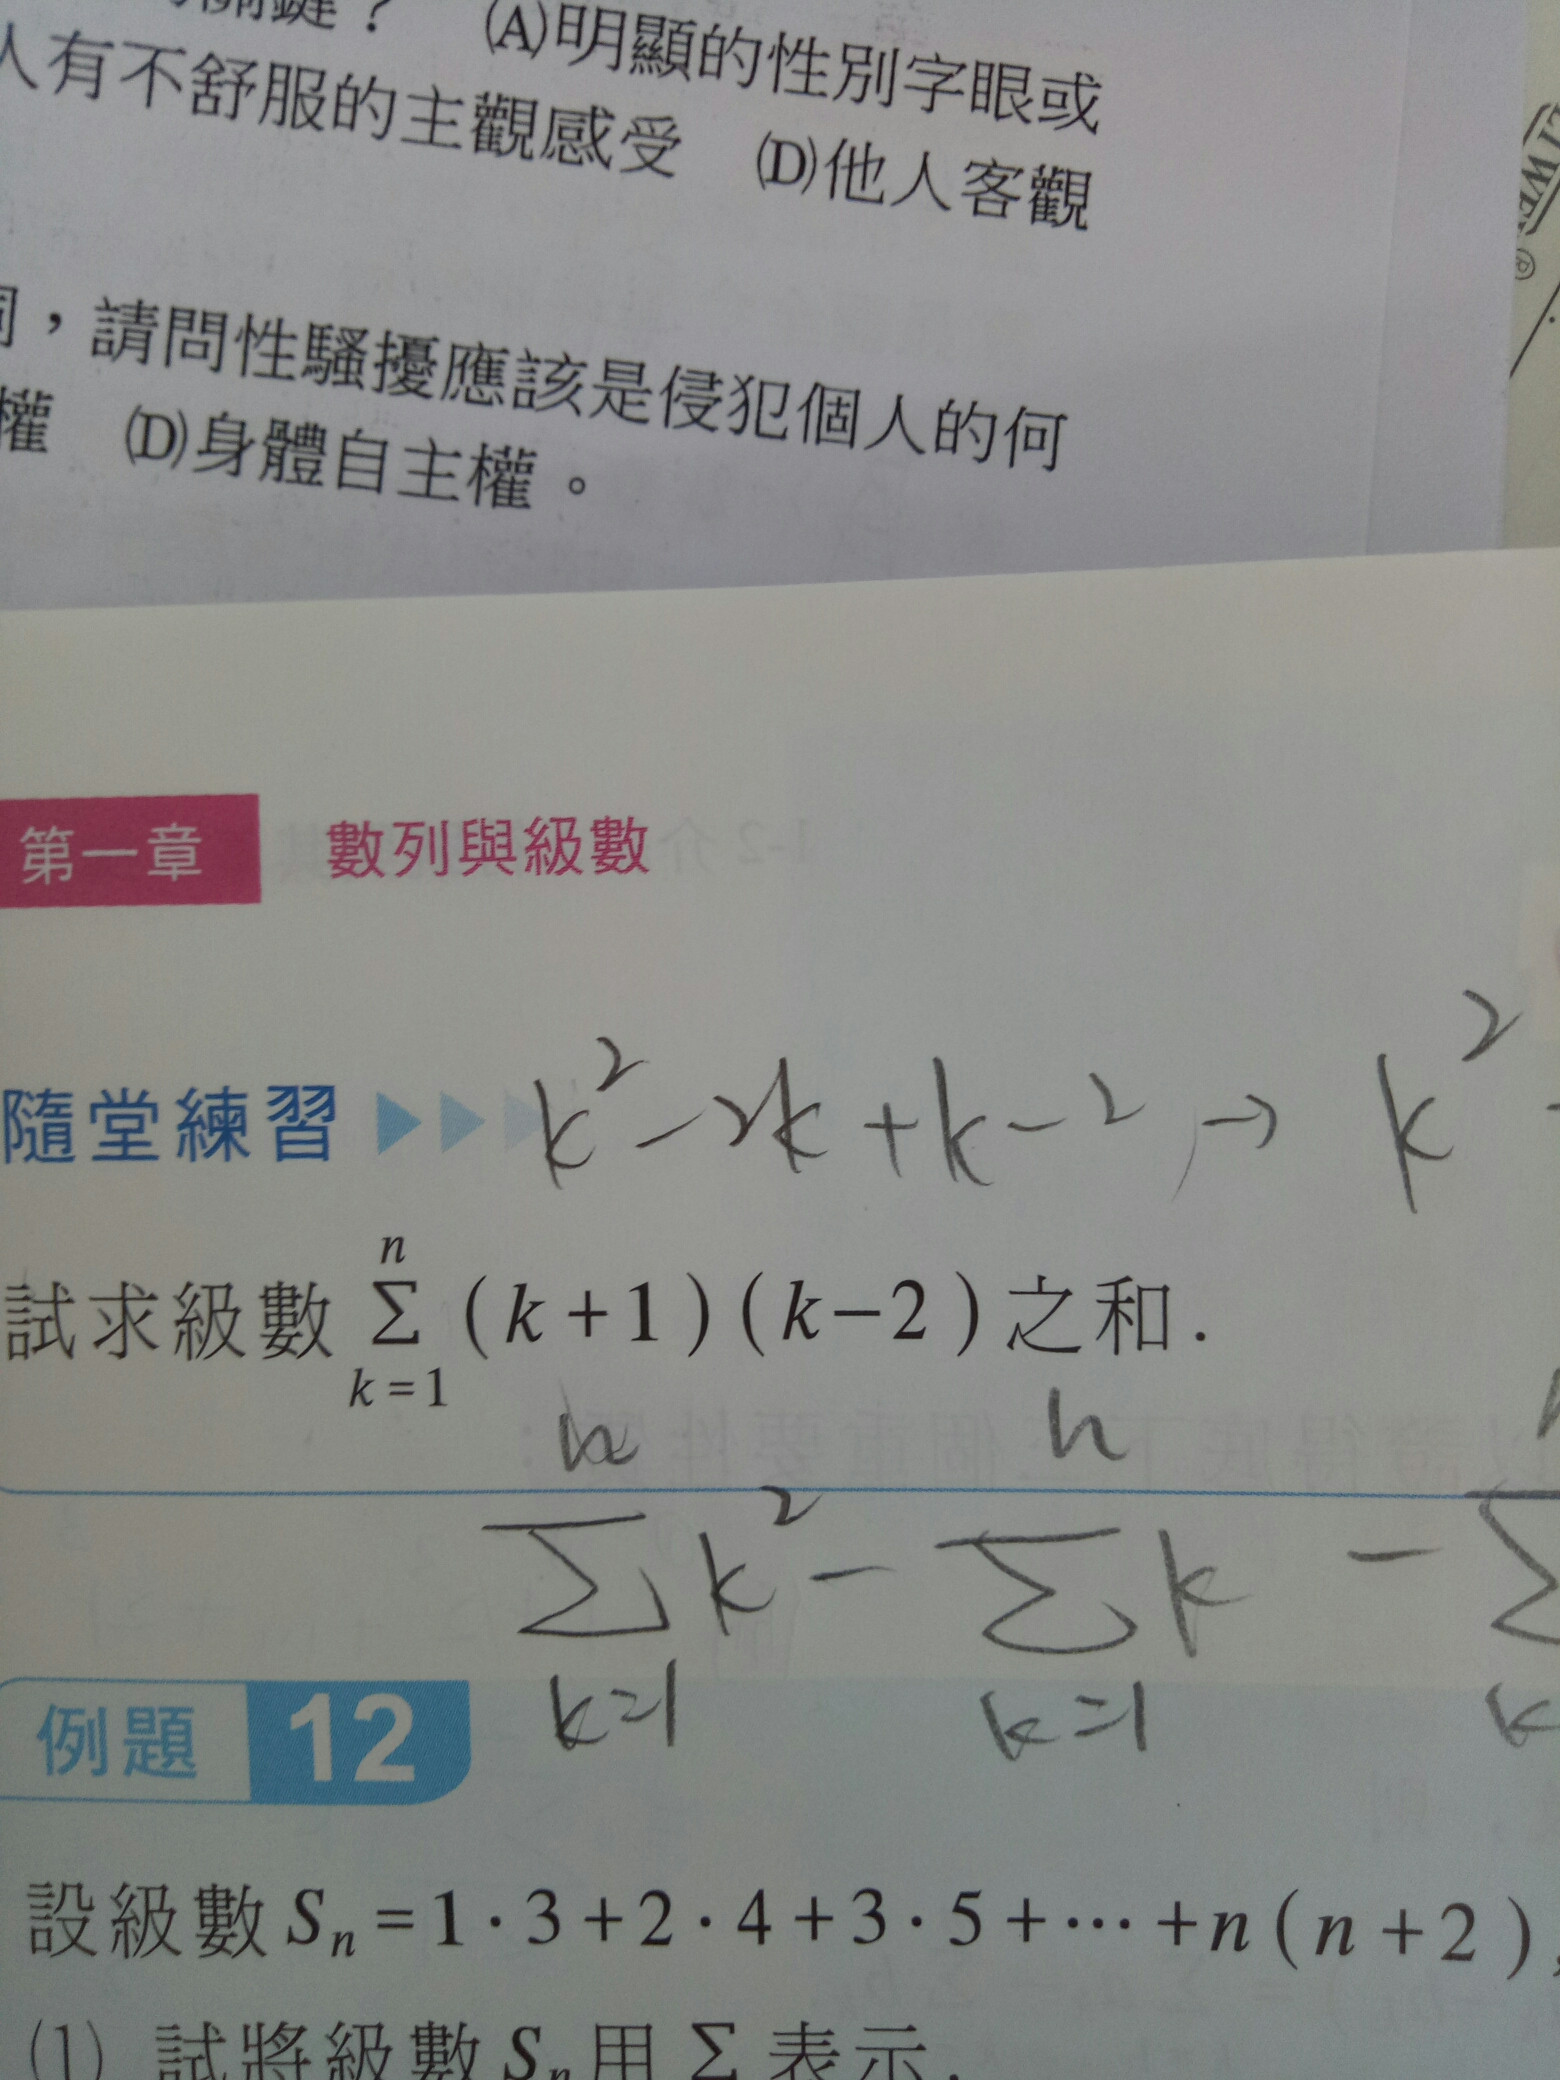 關鍵？ (A)明顯的性別字眼或
人有不舒服的主觀感受 (D)他人客觀
，請問性騷擾應該是侵犯個人的何
權 (D)身體自主權。
第一章 數列與級數
隨堂練習 k²-2k+k-2, → k²
試求級數 n∑k=1 (k+1)(k-2)之和.
n∑k=1 k² - n∑k=1 k - ∑
例題 12
設級數 Sn=1·3+2·4+3·5+⋯+n(n+2),
(1) 試將級數 Sn 用 Σ 表示.